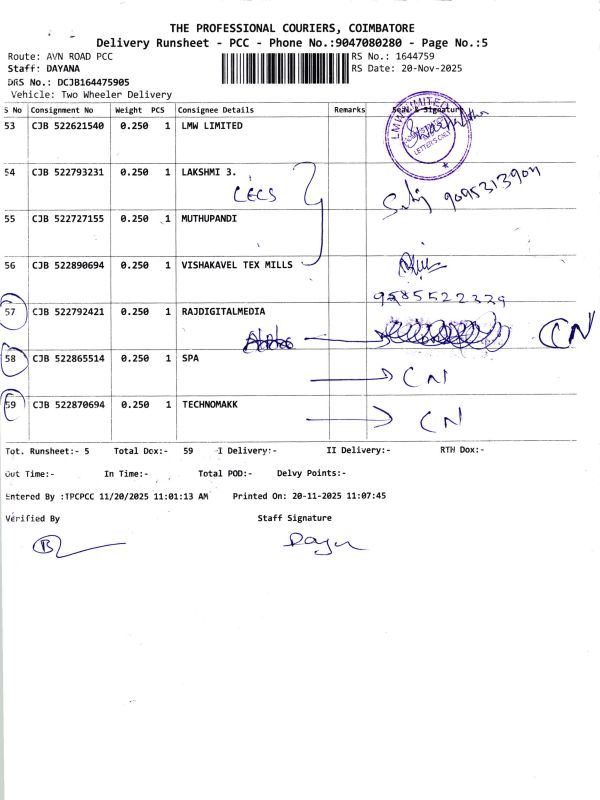 THE PROFESSIONAL COURIERS, COIMBATORE
Delivery Runsheet - PCC - Phone No.:9047080280 - Page No.:5
Route: AVN ROAD PCC
RS No.: 1644759
Staff: DAYANA
RS Date: 20-Nov-2025
DRS No.: DCJB164475905
Vehicle: Two Wheeler Delivery
S No Consignment No Weight PCS Consignee Details Remarks Seal & Signature
53 CJB 522621540 0.250 1 LMW LIMITED
LMW LIMITED
54 CJB 522793231 0.250 1 LAKSHMI 3.
CECS
9095313904
55 CJB 522727155 0.250 1 MUTHUPANDI
56 CJB 522890694 0.250 1 VISHAKAVEL TEX MILLS
9585522329
57 CJB 522792421 0.250 1 RAJDIGITALMEDIA
CN
58 CJB 522865514 0.250 1 SPA
CN
59 CJB 522870694 0.250 1 TECHNOMAKK
CN
Tot. Runsheet:- 5 Total Dox:- 59 I Delivery:- II Delivery:- RTH Dox:-
Out Time:- In Time:- Total POD:- Delvy Points:-
Entered By :TPCPCC 11/20/2025 11:01:13 AM Printed On: 20-11-2025 11:07:45
Verified By Staff Signature
B